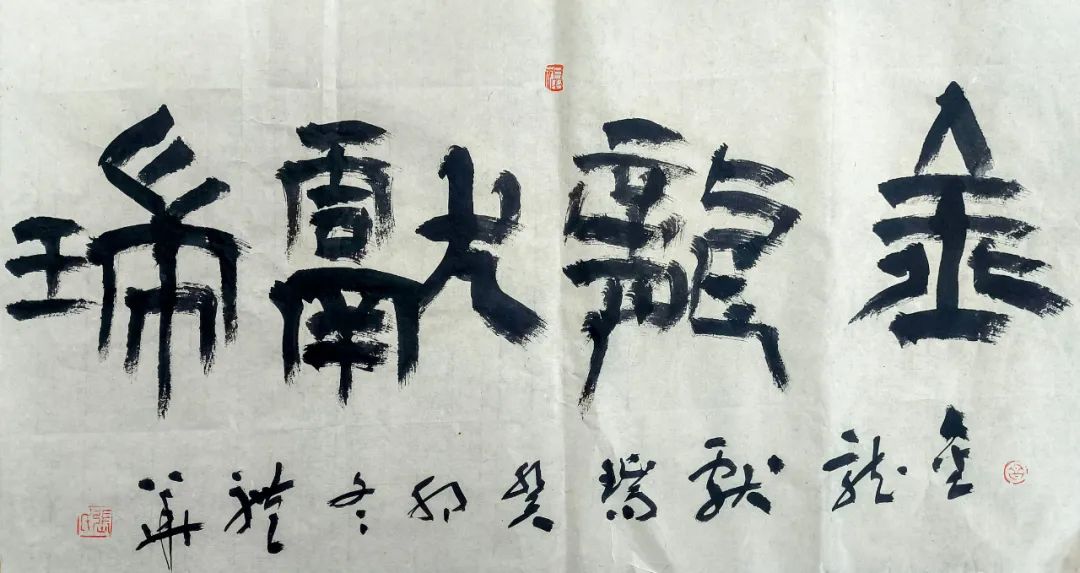 金龍獻瑞
金龍獻瑞癸卯冬華